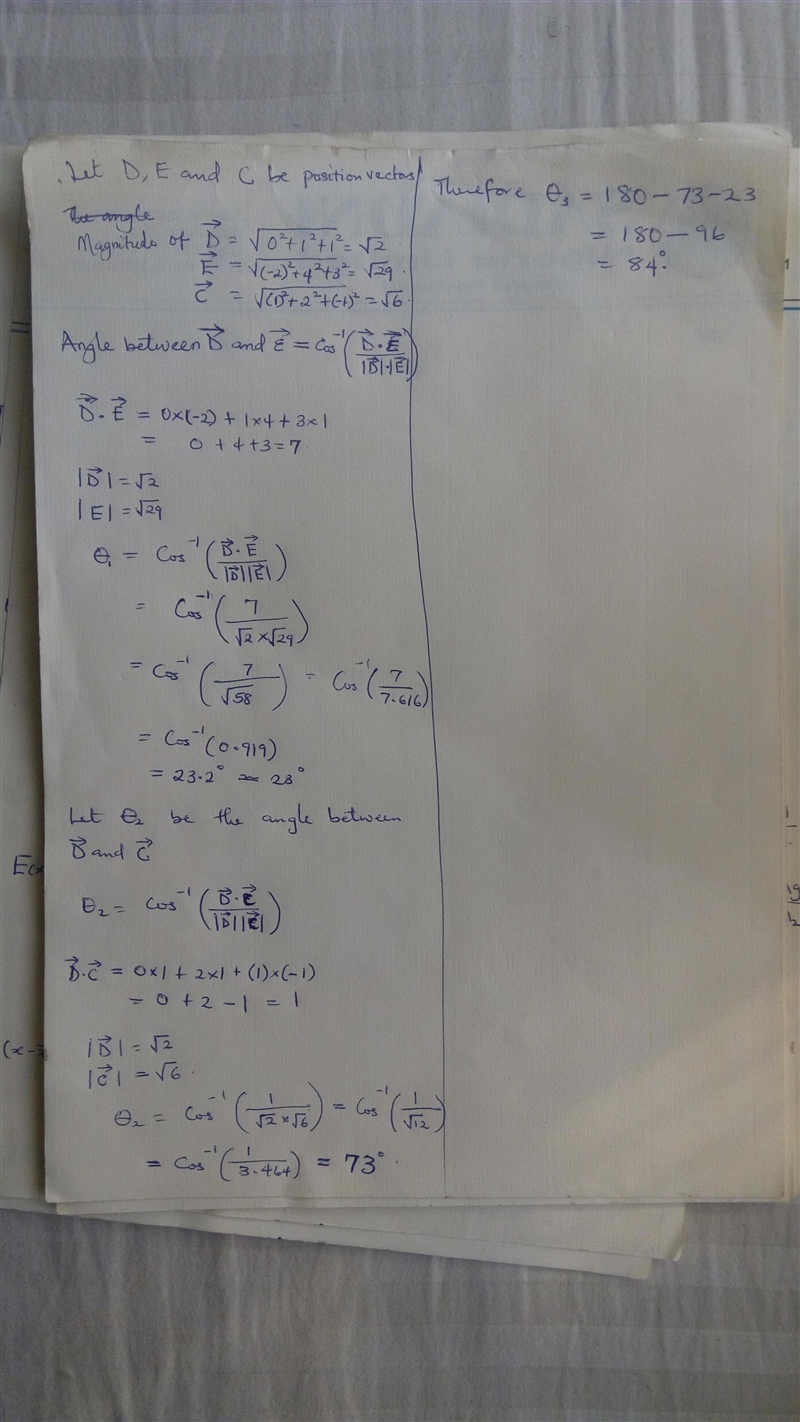 . Let D, E and C be position vectors
The angle
Magnitude of D⃗ = √(0²+1²+1²) = √2
E⃗ = √((-2)²+4²+3²) = √29.
C⃗ = √((1)²+2²+(-1)²) = √6.
Angle between D⃗ and E⃗ = Cos⁻¹(D⃗·E⃗/|D⃗|·|E⃗|)
D⃗·E⃗ = 0×(-2) + 1×4 + 3×1
= 0 + 4 + 3 = 7.
|D⃗| = √2
|E| = √29
θ₁ = Cos⁻¹(D⃗·E⃗/|D⃗||E⃗|)
= Cos⁻¹(7/√2×√29)
= Cos⁻¹(7/√58) = Cos⁻¹(7/7.616)
= Cos⁻¹(0.919)
= 23.2° ≃ 23°
Let θ₂ be the angle between
D⃗ and C⃗
θ₂ = Cos⁻¹(D⃗·C⃗/|D⃗||C⃗|)
D⃗·C⃗ = 0×1 + 2×1 + (1)×(-1)
= 0 + 2 - 1 = 1
|D⃗| = √2
|C⃗| = √6.
θ₂ = Cos⁻¹(1/√2×√6) = Cos⁻¹(1/√12)
= Cos⁻¹(1/3.464) = 73°.
Therefore θ₃ = 180 - 73 - 23
= 180 - 96
= 84°.